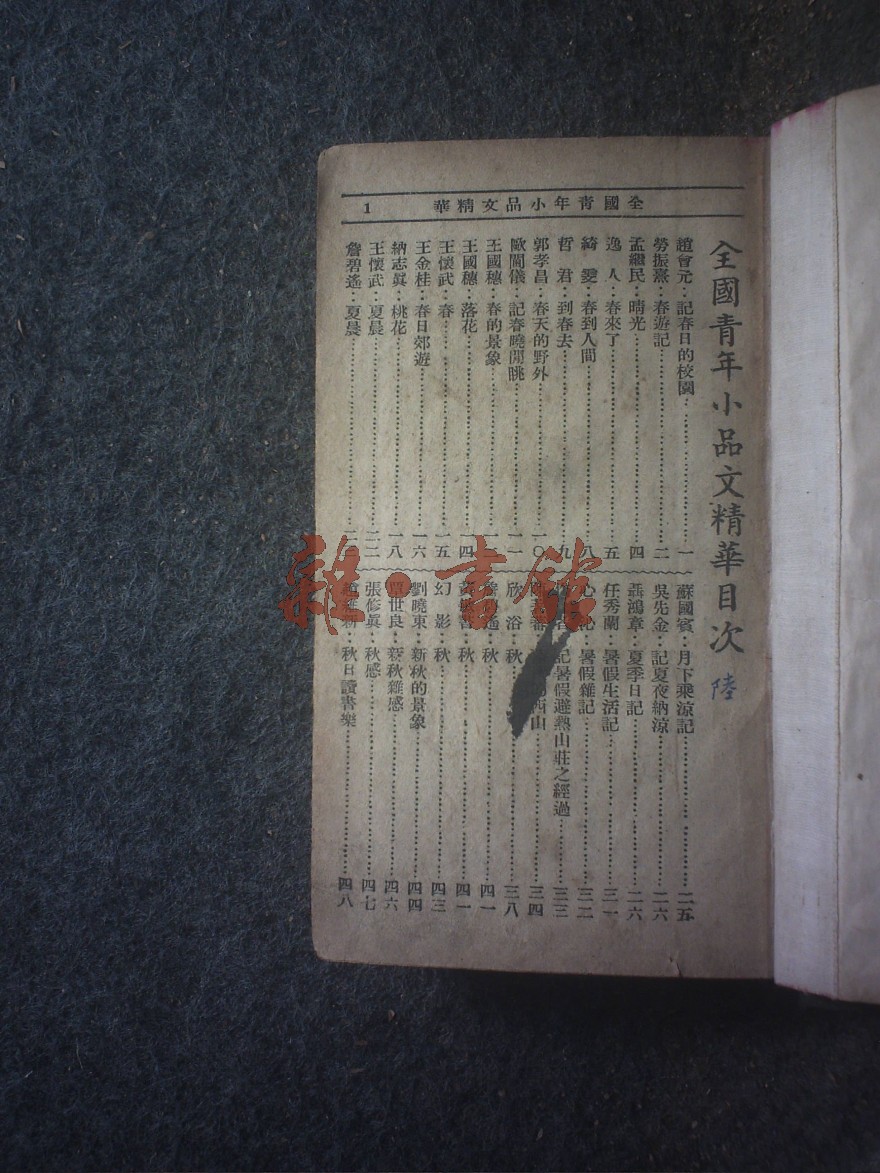 全國青年小品文精華
1
全國青年小品文精華目次
陸
趙曾元：記春日的校園……一
勞振熹：春遊記……二
孟繼民：晴光……四
逸人：春來了……五
綺雯：春到人間……八
哲君：到春去……九
郭孝昌：春天的野外……一〇
歐閣儀：記春曉閒眺……一一
王國穗：春的景象……一
王國穗：落花……四
王懷武：春……一五
王金桂：春日郊遊……一六
納志眞：桃花……一八
王懷武：夏晨……二二
詹碧遙：夏晨……二
蘇國賓：月下乘涼記……二五
吳先金：記夏夜納涼……二六
聶鴻章：夏季日記……二六
任秀蘭：暑假生活記……三一
心：暑假雜記……三二
記暑假避熱山莊之經過……三三
西山……三四
欣浴：秋……三八
遙：秋……四一
秋……四一
幻影：秋……四三
劉曉東：新秋的景象……四四
單世良：新秋雜感……四六
張修眞：秋感……四七
秋日讀書樂……四八
雜·書館